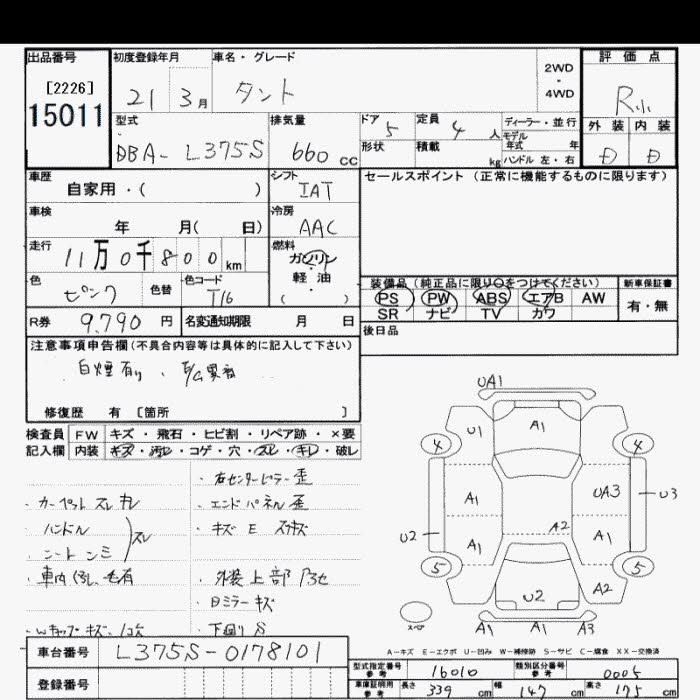 出品番号
[2226]
15011
初度登録年月
21 3月
車名・グレード
タント
2WD
・
4WD
評価点
R小
外装 内装
D D
型式
DBA-L375S
排気量
660 cc
ドア
5
定員
4人
ディーラー・並行
モデル
年式 年
形状
積載 kg
ハンドル 左・右
車歴
自家用・( )
シフト
IAT
セールスポイント(正常に機能するものに限ります)
車検
年 月( 日)
冷房
AAC
走行
11万0千800km
燃料
ガソリン
・
軽油
( )
色
ピンク
色替
色コード
T16
装備品(純正品に限り○をつけてください)
PS PW ABS エアB AW
SR ナビ TV カワ
新車保証書
有・無
R券
9,790円
名変通知期限 月 日
後日品
注意事項申告欄(不具合内容等は具体的に記入して下さい)
白煙有り、
修復歴 有 [箇所 ]
検査員 FW キズ・飛石・ヒビ割・リペア跡・×要
記入欄 内装 キズ・汚レ・コゲ・穴・スレ・キレ・破レ
・カーペットスレキレ
・ハンドル
スレ
・右センターピラー歪
・エンドパネル歪
・キズ E
・外装上部
・Bミラーキズ
・下回りS
・Wキャップキズ、
車台番号
L375S-0178101
登録番号
UA1
U1
A1
4
4
A1
UA3
U3
U2
A1
A2
A1
5
5
U2
A2
A1
A1
A1
スペア
A-キズ E-エクボ U-凹み W-補修跡 S-サビ C-腐食 XX-交換済
型式指定番号
参考
16010
類別区分番号
参考
0005
車庫証明用
参考
長さ 339 cm 幅 147 cm 高さ 175 cm